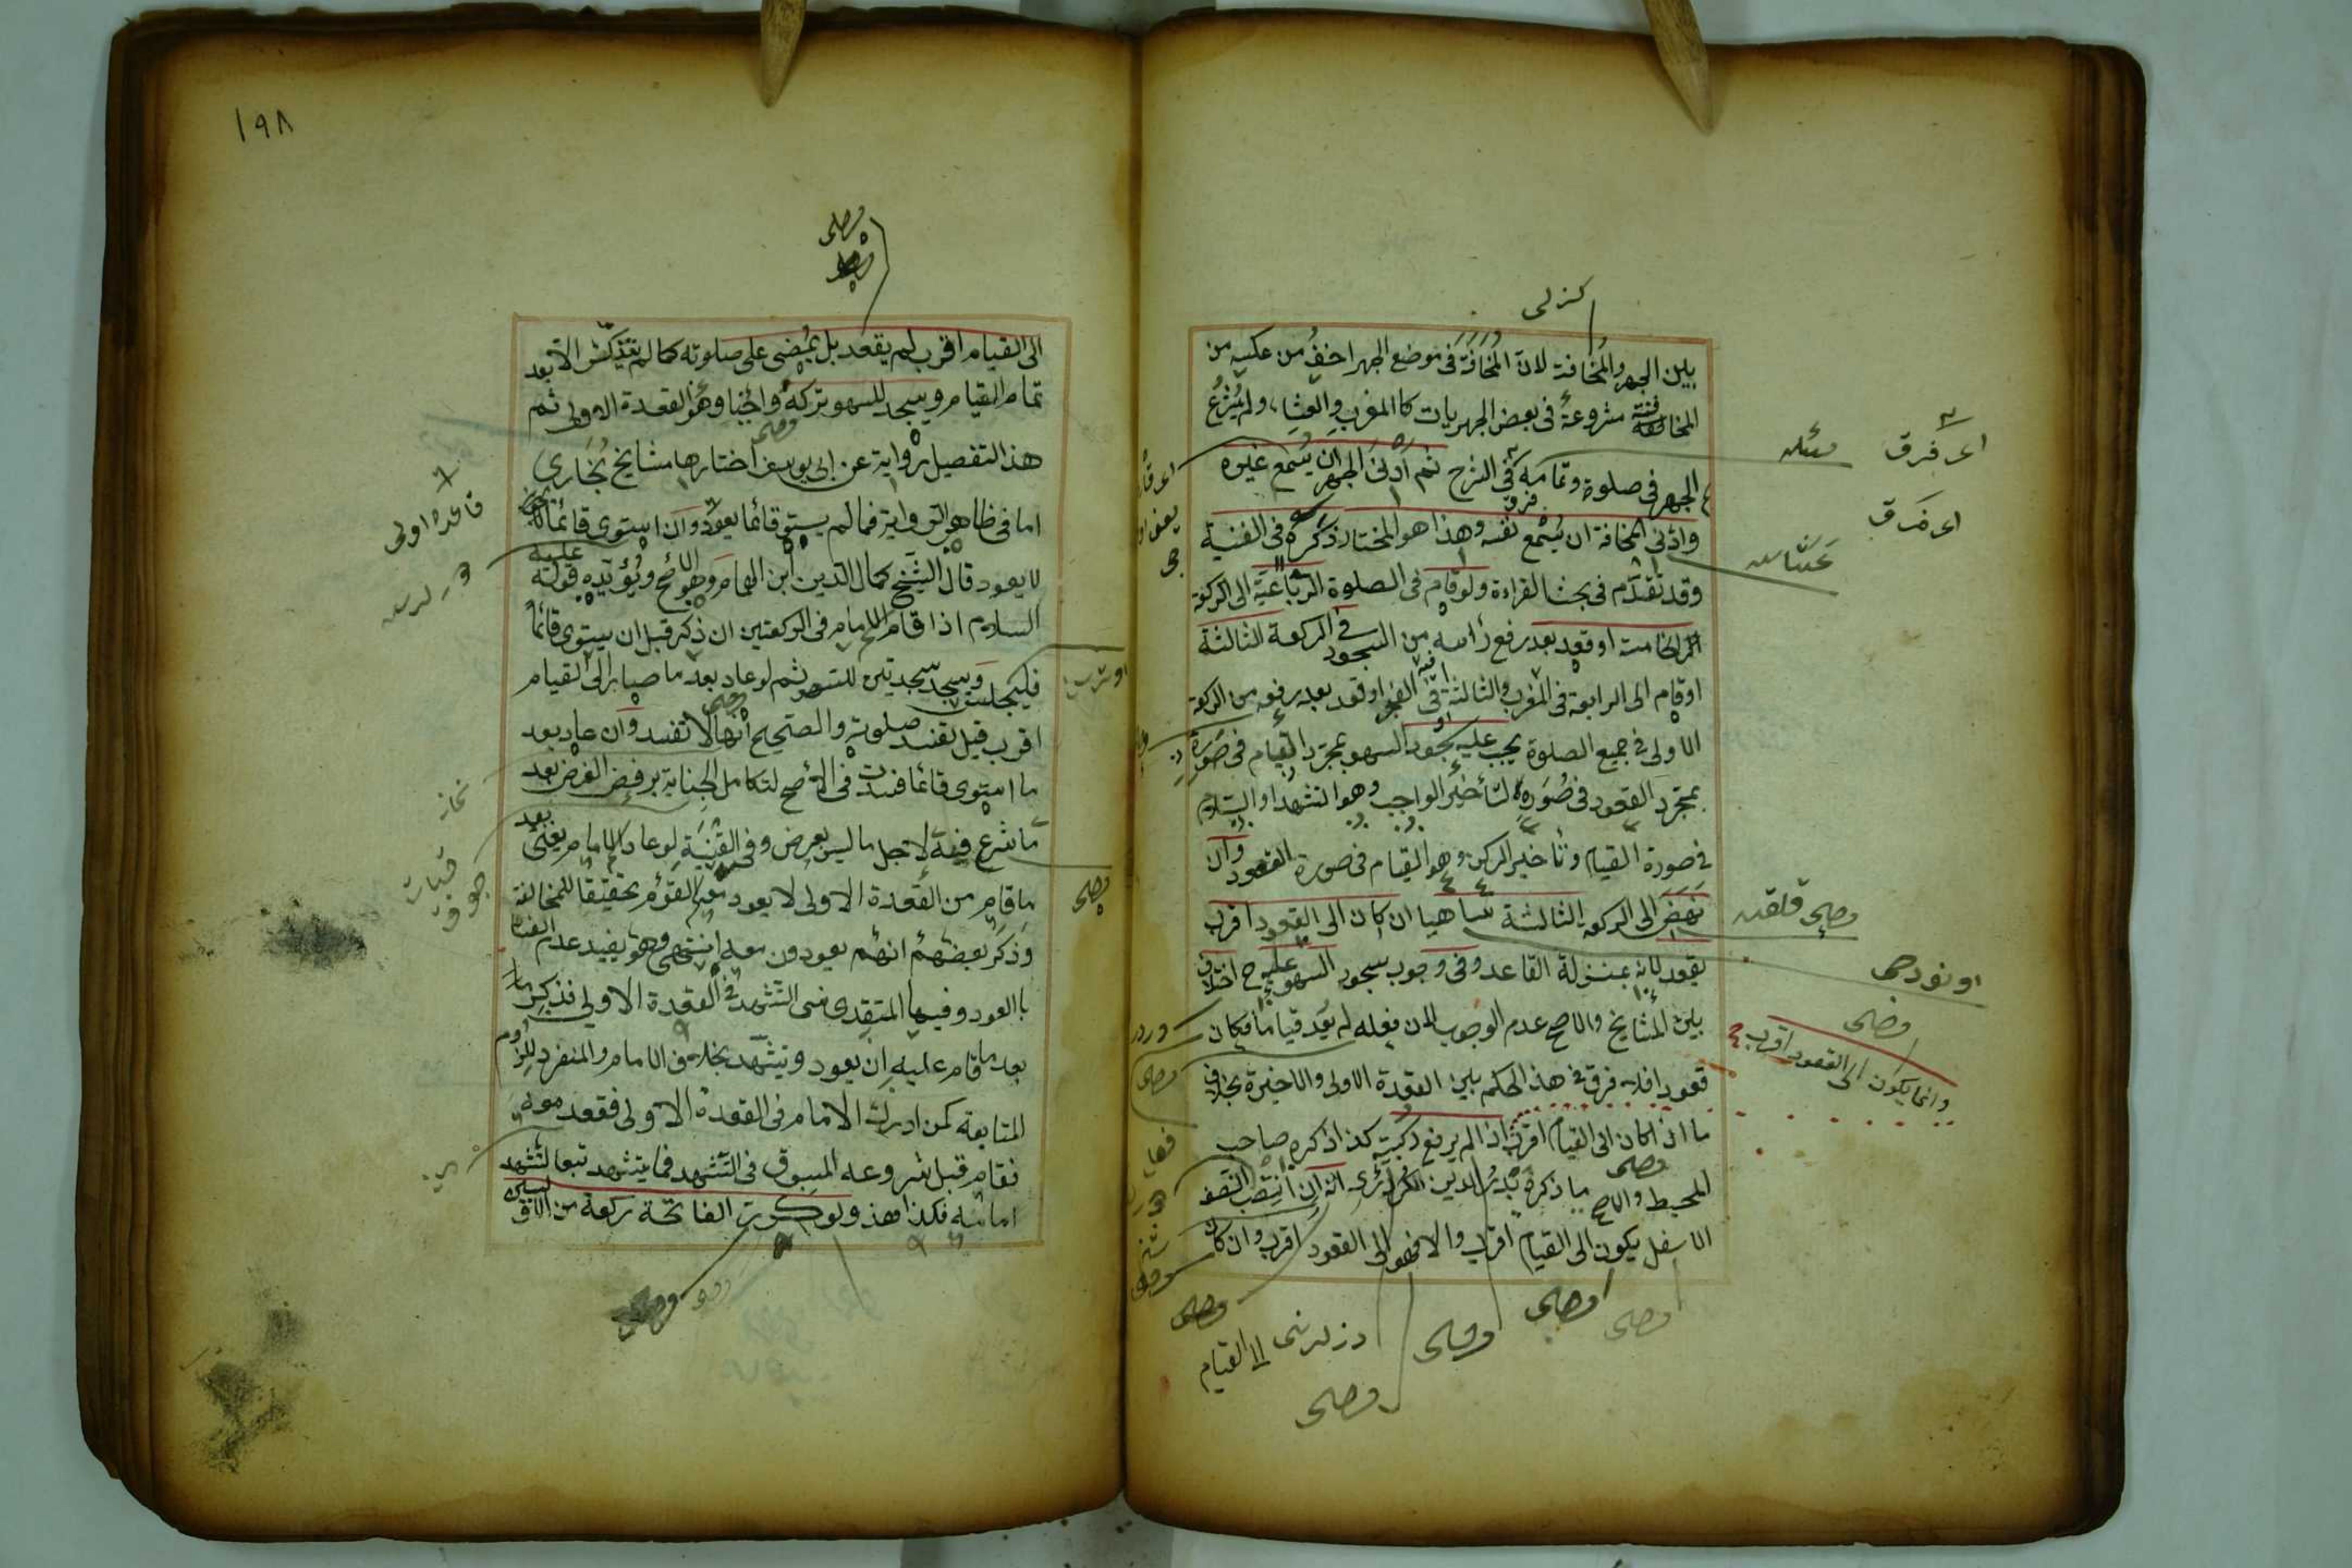 بين الجهر والمخافتة لان المخافتة في موضع الجهر اخف من عكسه من
المخافتة مشروعة في بعض الجهريات كالمغرب والعشاء ولم يشرع
الجهر في صلوة وتمامه في الشرح ثم ادنى الجهر ان يسمع غيره
وادنى المخافتة ان يسمع نفسه وهذا هو المختار ذكره في القنية
وقد تقدم في بحث القراءة ولو قام في الصلوة الرباعية الى الركعة
الخامسة او قعد بعد رفع رأسه من السجود في الركعة الثالثة
او قام الى الرابعة في المغرب والثالثة في الفجر او قعد بعد رفعه من الركعة
الاولى في جميع الصلوة يجب عليه سجود السهو بمجرد القيام في صورة
بمجرد القعود في صوره لتأخير الواجب وهو التشهد او السلام
في صورة القيام وتأخير الركن وهو القيام في صورة القعود وان
نهض الى الركعة الثالثة ساهيا ان كان الى القعود اقرب
يقعد لانه بمنزلة القاعد وفي وجوب سجود السهو عليه ح اختلاف
بين المشايخ والاصح عدم الوجوب لان فعله لم يعد قياما فكان
قعودا فلا فرق في هذا الحكم بين القعدة الاولى والاخيرة بخلاف
ما اذا كان الى القيام اقرب اذا لم يرفع ركبتيه كذا ذكره صاحب
المحيط والاصح ما ذكره بدر الدين الكردري انه ان انتصب النصف
الاسفل يكون الى القيام اقرب والا فهو الى القعود اقرب وان كان
اى فرق
اى فرق
وانما يكون الى القعود اقرب
الى القيام
١٩٨
الى القيام اقرب لم يقعد بل يمضى على صلوته كما لم يتذكر الا بعد
تمام القيام ويسجد للسهو بتركه واجبا وهو القعدة الاولى ثم
هذا التفصيل رواية عن ابى يوسف اختارها مشايخ بخارى
اما في ظاهر الرواية فما لم يستو قائما يعود وان استوى قائما
لا يعود قال الشيخ كمال الدين ابن الهمام وهو الاصح ويؤيده قوله عليه
السلام اذا قام الامام في الركعتين ان ذكر قبل ان يستوى قائما
فليجلس ويسجد سجدتين للسهو ثم لو عاد بعد ما صار الى القيام
اقرب قيل تفسد صلوته والصحيح انها لا تفسد وان عاد بعد
ما استوى قائما فسدت في الاصح لتكامل الجناية برفض الفرض بعد
ما شرع فيه لاجل ما ليس بفرض وفي القنية لو عاد الامام يعنى بعد
ما قام من القعدة الاولى لا يعود معه القوم تحقيقا للمخالفة
وذكر بعضهم انهم يعودون معه انتهى وهو يفيد عدم الفساد
بالعود وفيها المقتدى نسى التشهد في القعدة الاولى فذكر
بعد ما قام عليه ان يعود ويتشهد بخلاف الامام والمنفرد للزوم
المتابعة كمن ادرك الامام في القعدة الاولى فقعد معه
فقام قبل شروعه المسبوق في التشهد فما يتشهد تبعا لتشهد
امامه فكذا هذا ولو كررت الفاتحة ركعة من
قاعده اولى